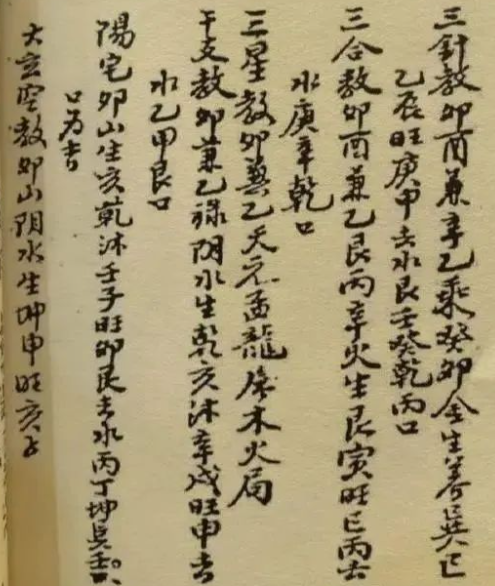 三針教卯酉兼辛乙乘癸卯金生養巽巳
乙辰旺庚甲去水艮壬癸乾丙口
三合教卯酉兼乙艮丙辛火生艮寅旺巳丙去
水庚辛乾口
三星教卯兼乙天元孟龍屬木火局
干支教卯兼乙祿阴水生乾亥沐辛戌旺申去
水乙甲艮口
陽宅卯山生亥乾沐壬子旺卯艮去水丙丁坤
口为吉
大玄空教卯山阴水生坤申旺亥子